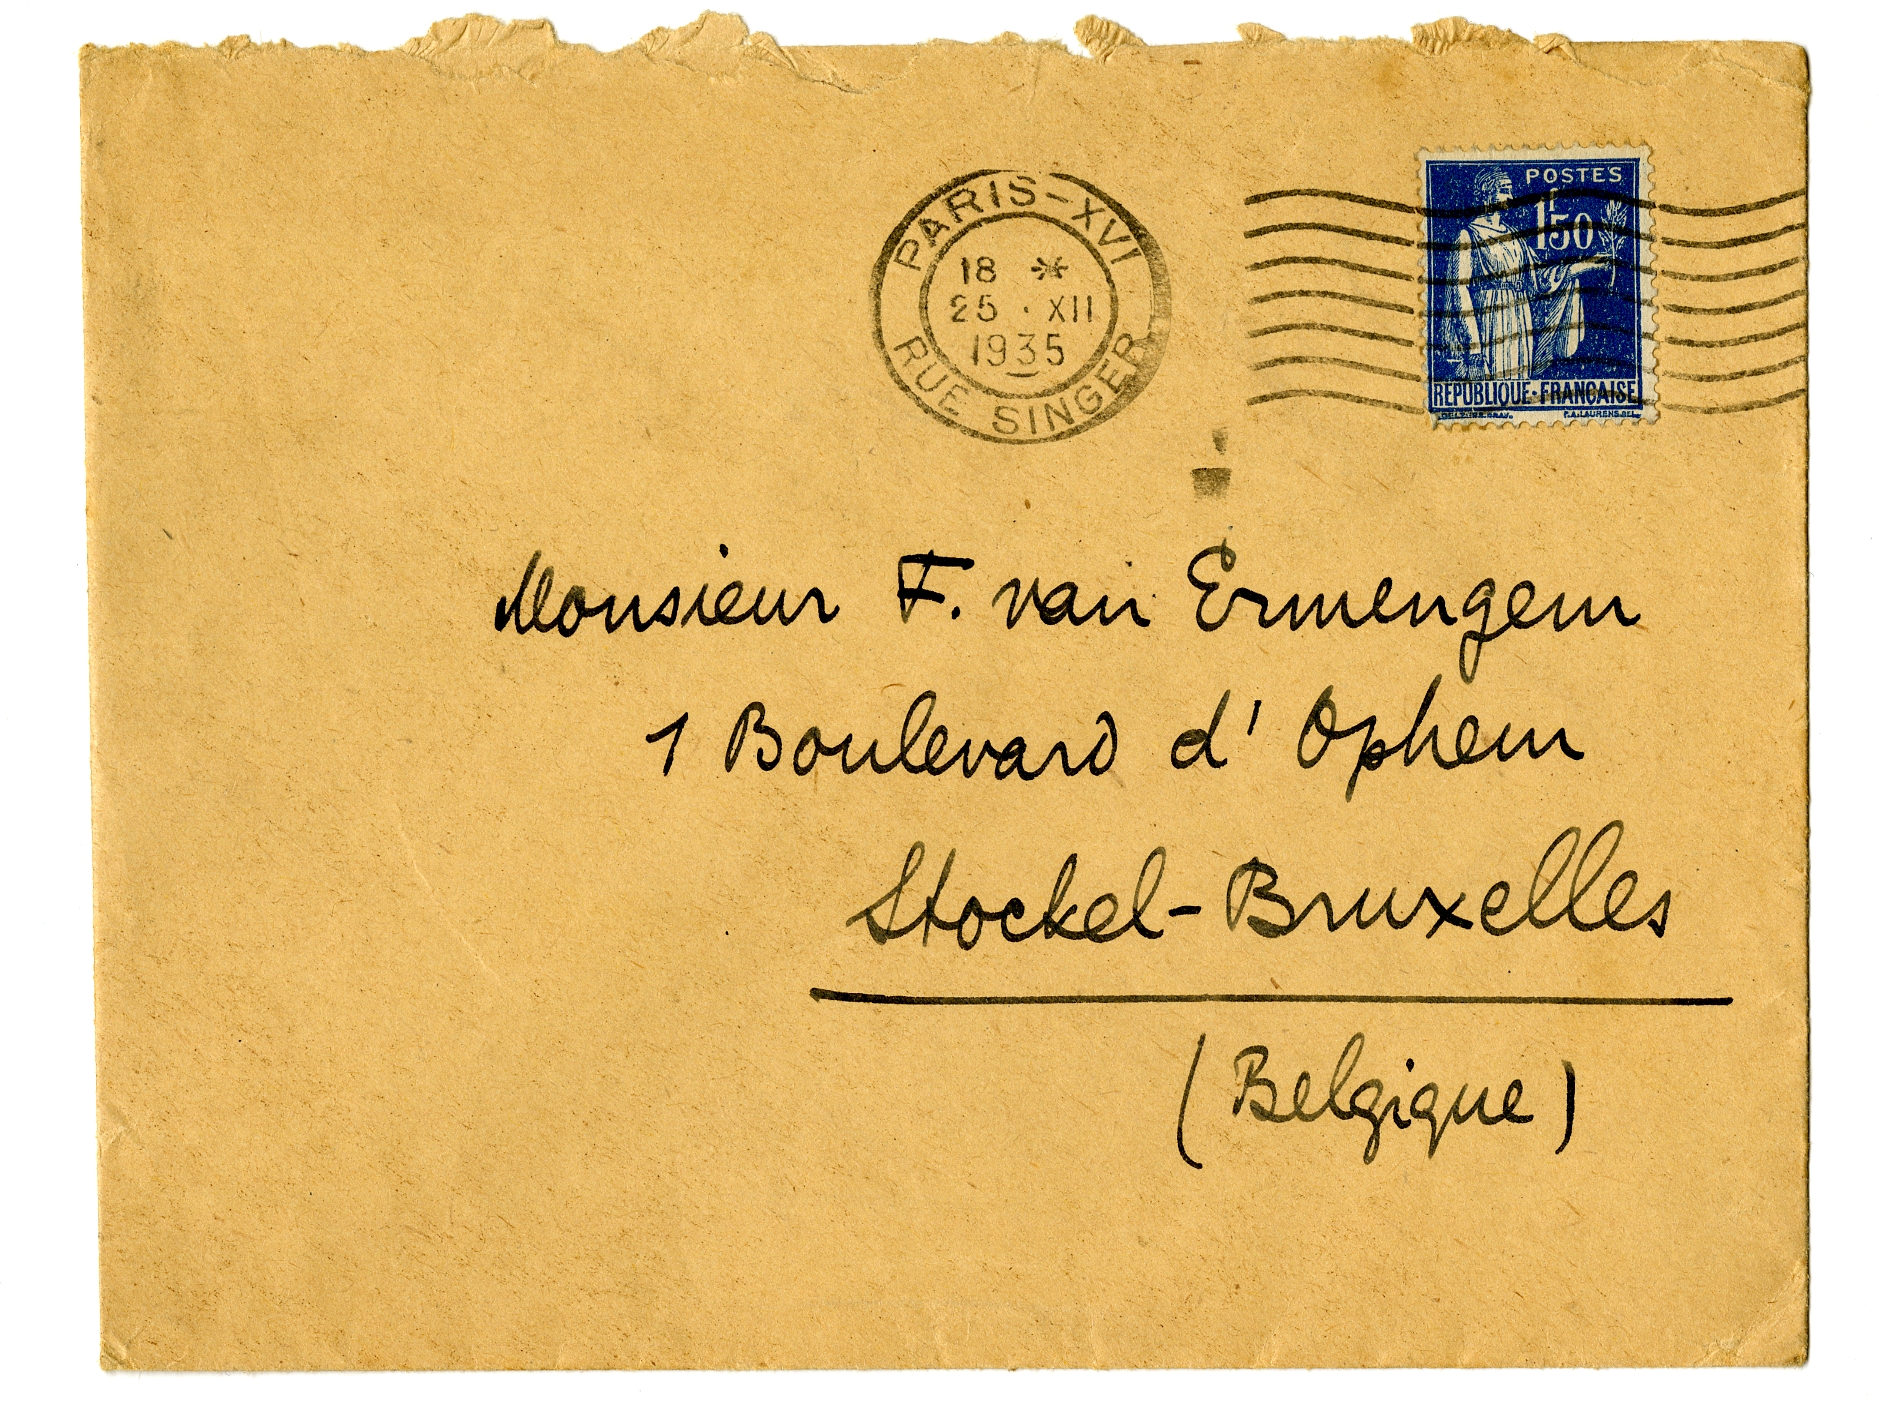 PARIS-XVI
18 *
25 · XII
1935
RUE SINGER
POSTES
1F50
REPUBLIQUE·FRANCAISE
P.A.LAURENS.DEL.
Monsieur F. van Ermengem
1 Boulevard d'Ophem
Stockel-Bruxelles
(Belgique)